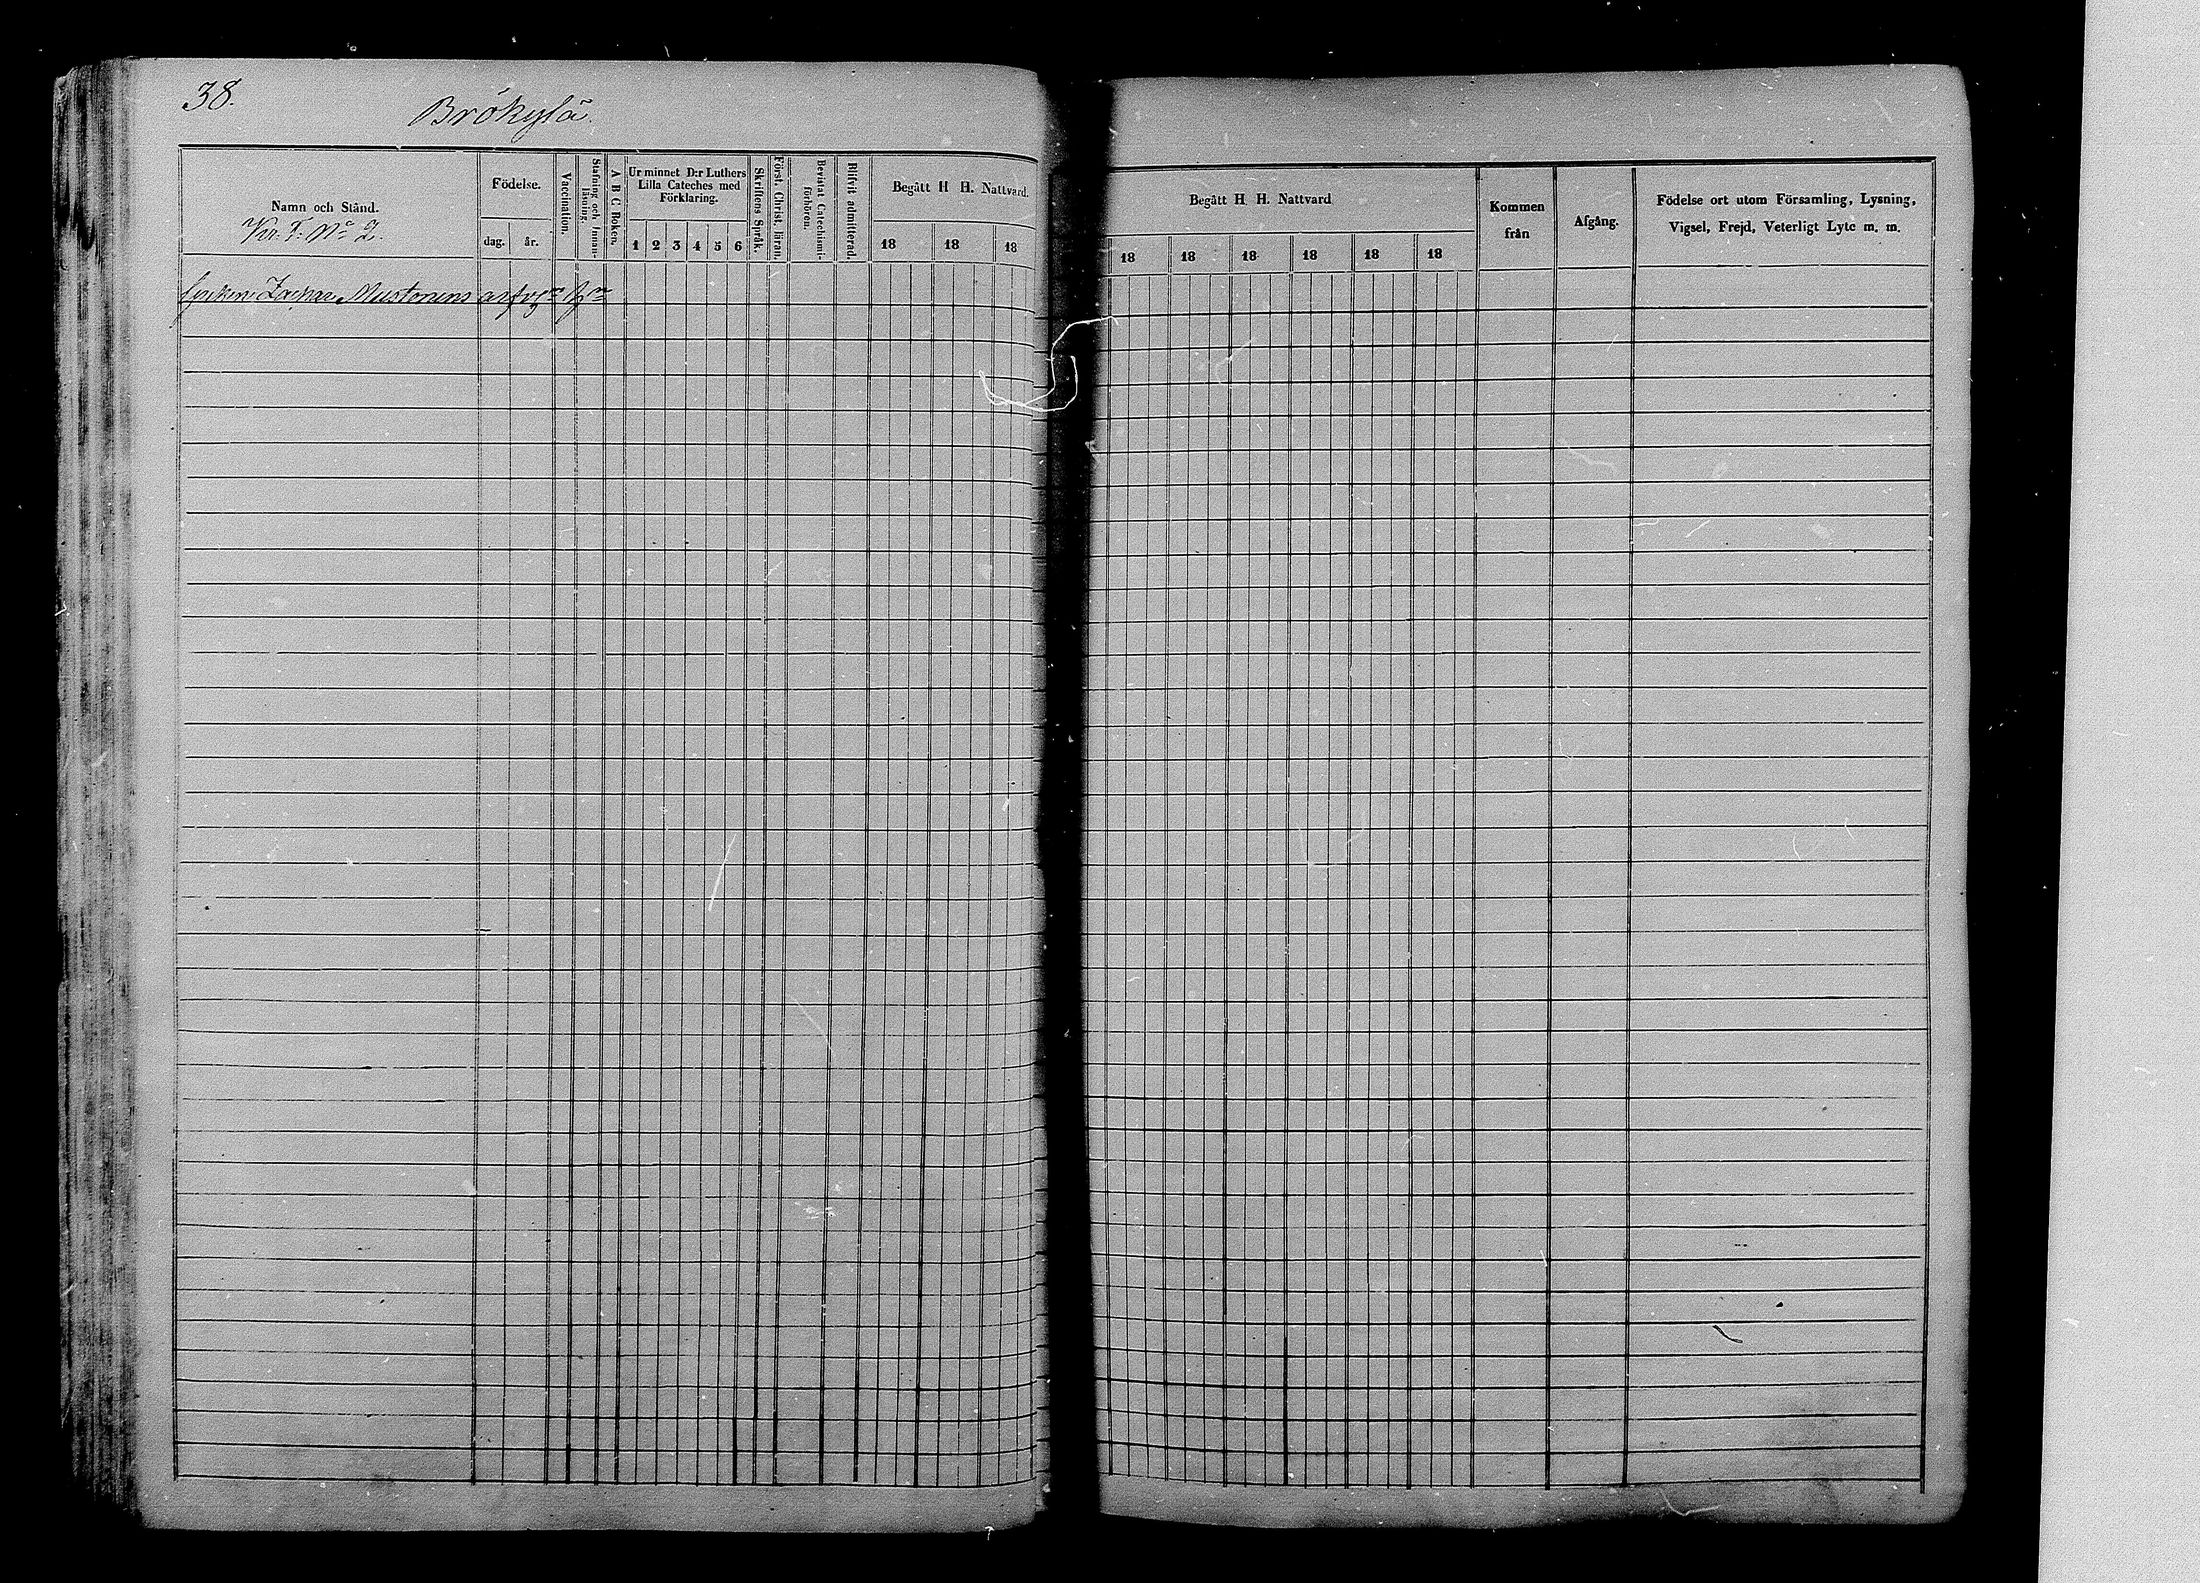 38.
Brökylä.
Namn och Stånd.
No 2.
Födelse.
dag. år.
Vaccination.
Stafning och Innan-
läsning.
A B C Boken.
Ur minnet D:r Luthers
Lilla Cateches med
Förklaring.
1 2 3 4 5 6
Skriftens Språk.
Först. Christ. läran.
Bevistat Catechismi-
förhören.
Blifvit admitterad.
Begått H H. Nattvard.
18 18 18
Mustonens
Begått H H. Nattvard
18 18 18 18 18 18
Kommen
från
Afgång.
Födelse ort utom Församling, Lysning,
Vigsel, Frejd, Veterligt Lyte m. m.